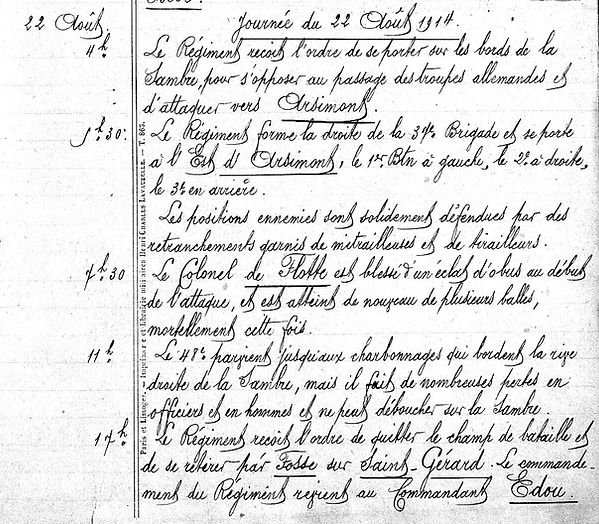 Journée du 22 Août 1914.
22 Août
4h
Le Régiment reçoit l'ordre de se porter sur les bords de la
Sambre, pour s'opposer au passage des troupes allemandes et
d'attaquer vers Arsimont.
5h30.
Le Régiment forme la droite de la 37e Brigade et se porte
à l'Est d'Arsimont, le 1er Btn à gauche, le 2e à droite,
le 3e en arrière.
Les positions ennemies sont solidement défendues par des
retranchements garnis de mitrailleuses et de tirailleurs.
7h.30
Le Colonel de Flotte est blessé d'un éclat d'obus au début
de l'attaque, et est atteint de nouveau de plusieurs balles,
mortellement cette fois.
11h
Le 48e parvient jusqu'aux charbonnages qui bordent la rive
droite de la Sambre, mais il fait de nombreuses pertes en
officiers et en hommes et ne peut déboucher sur la Sambre.
17h
Le Régiment reçoit l'ordre de quitter le champ de bataille et
de se retirer par Fosse sur Saint-Gérard. Le commande-
ment du Régiment revient au Commandant Edou.
Paris et Limoges. — Imprimerie et librairie militaires Henri CHARLES-LAVAUZELLE. — T. 865.